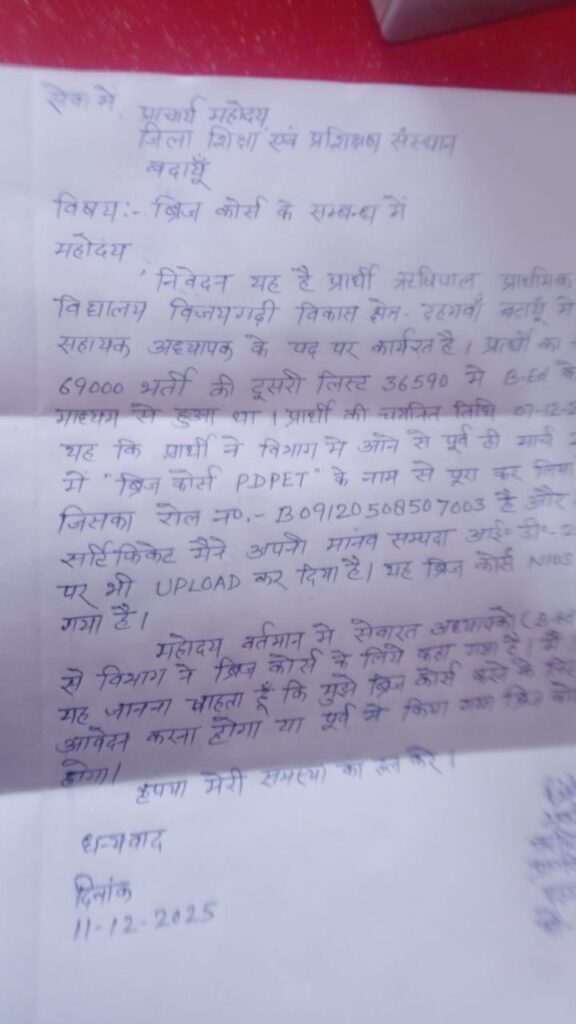 सेवा में,
प्राचार्य महोदय
जिला शिक्षा एवं प्रशिक्षण संस्थान
बदायूँ
विषय:- ब्रिज कोर्स के सम्बन्ध में
महोदय
निवेदन यह है प्रार्थी ऋषिपाल प्राथमिक
विद्यालय विजयगढ़ी विकास क्षेत्र- दहगवाँ बदायूँ में
सहायक अध्यापक के पद पर कार्यरत है। प्रार्थी का
69000 भर्ती की दूसरी लिस्ट 36590 में B-Ed के
माध्यम से हुआ था। प्रार्थी की चयनित तिथि 07-12-2
यह कि प्रार्थी ने विभाग में आने से पूर्व ही मार्च
में "ब्रिज कोर्स PDPET" के नाम से पूरा कर लिया
जिसका रोल न०.- B09120508507003 है और
सर्टिफिकेट मैंने अपनी मानव सम्पदा आई० डी०- 2
पर भी UPLOAD कर दिया है। यह ब्रिज कोर्स NIOS
गया है।
महोदय वर्तमान में सेवारत अध्यापकों (B-Ed
से विभाग ने ब्रिज कोर्स के लिये कहा गया है। मैं
यह जानना चाहता हूँ कि मुझे ब्रिज कोर्स करने के लिए
आवेदन करना होगा या पूर्व में किया गया ब्रिज को
होगा।
कृपया मेरी समस्या का हल करें।
धन्यवाद
दिनांक
11-12-2025